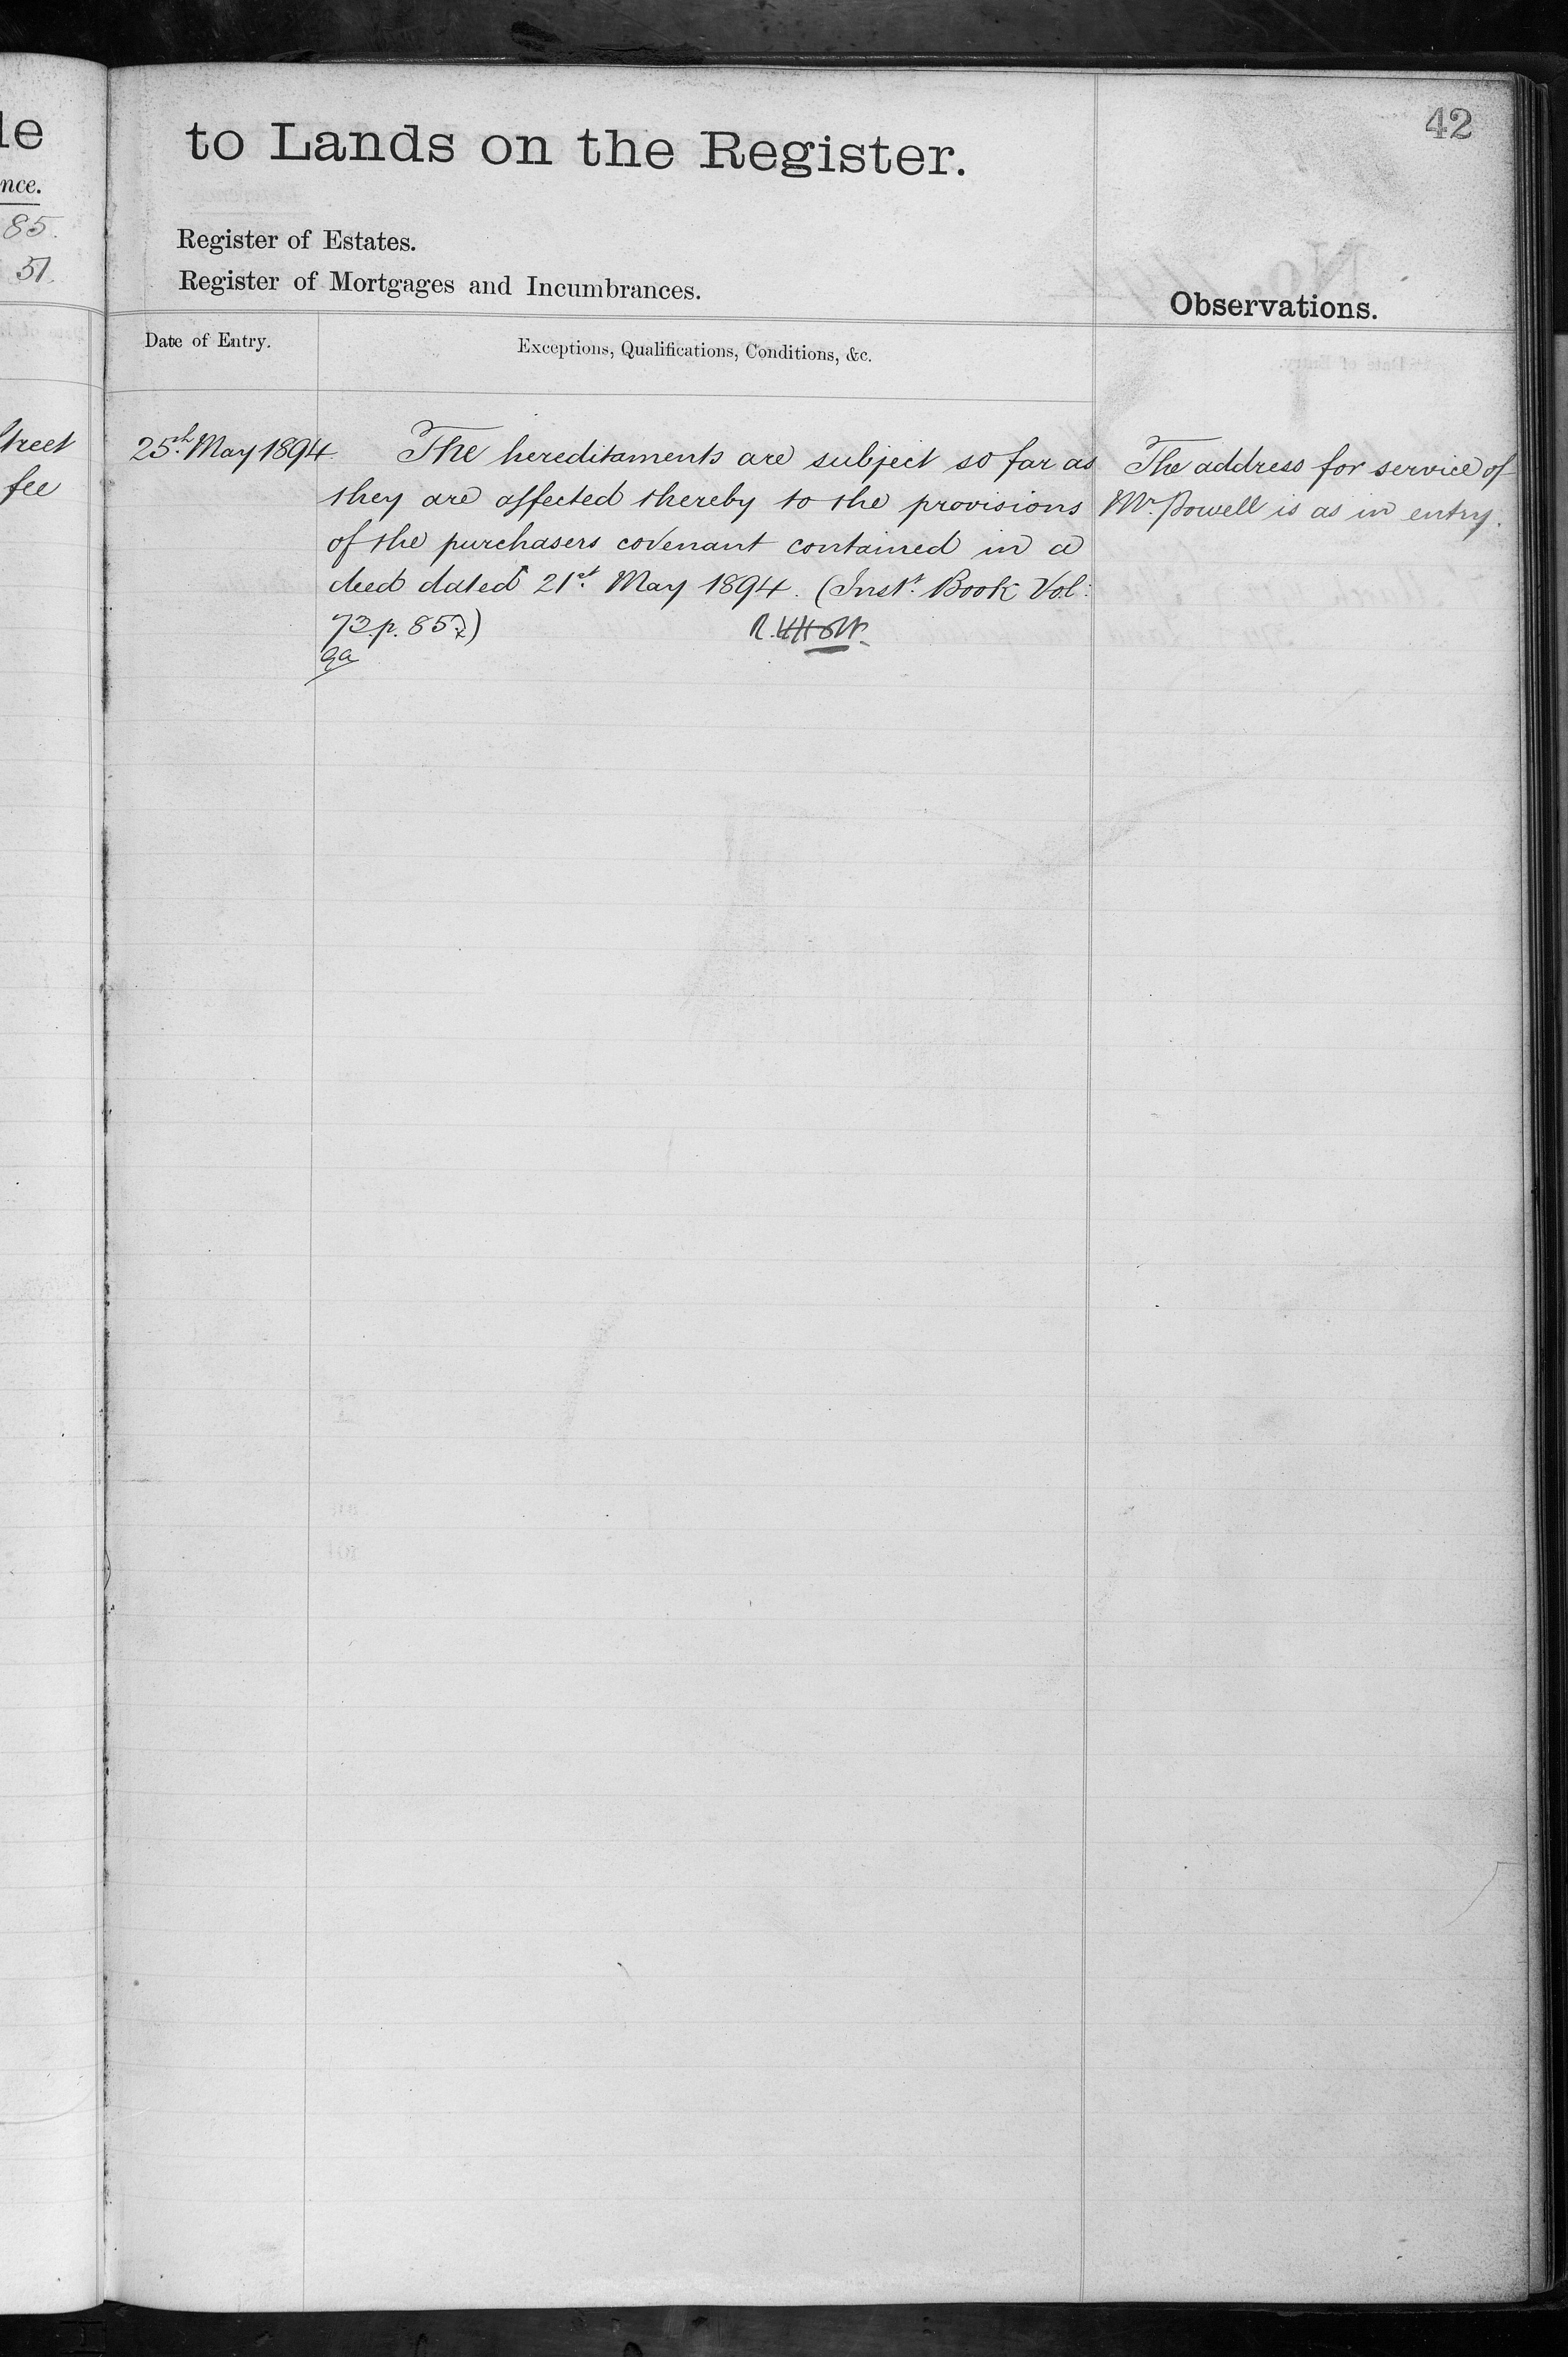 le
nce.
85.
51.
treet
fee
42
to Lands on the Register.
Register of Estates.
Register of Mortgages and Incumbrances.
Observations.
Date of Entry.
Exceptions, Qualifications, Conditions, &c.
25th May 1894.
The hereditaments are subject so far as
they are affected thereby to the provisions
of the purchasers covenant contained in a
deed dated 21st May 1894. (Inst. Book Vol:
73 p. 857)
The address for service of
Mr. Powell is as in entry.